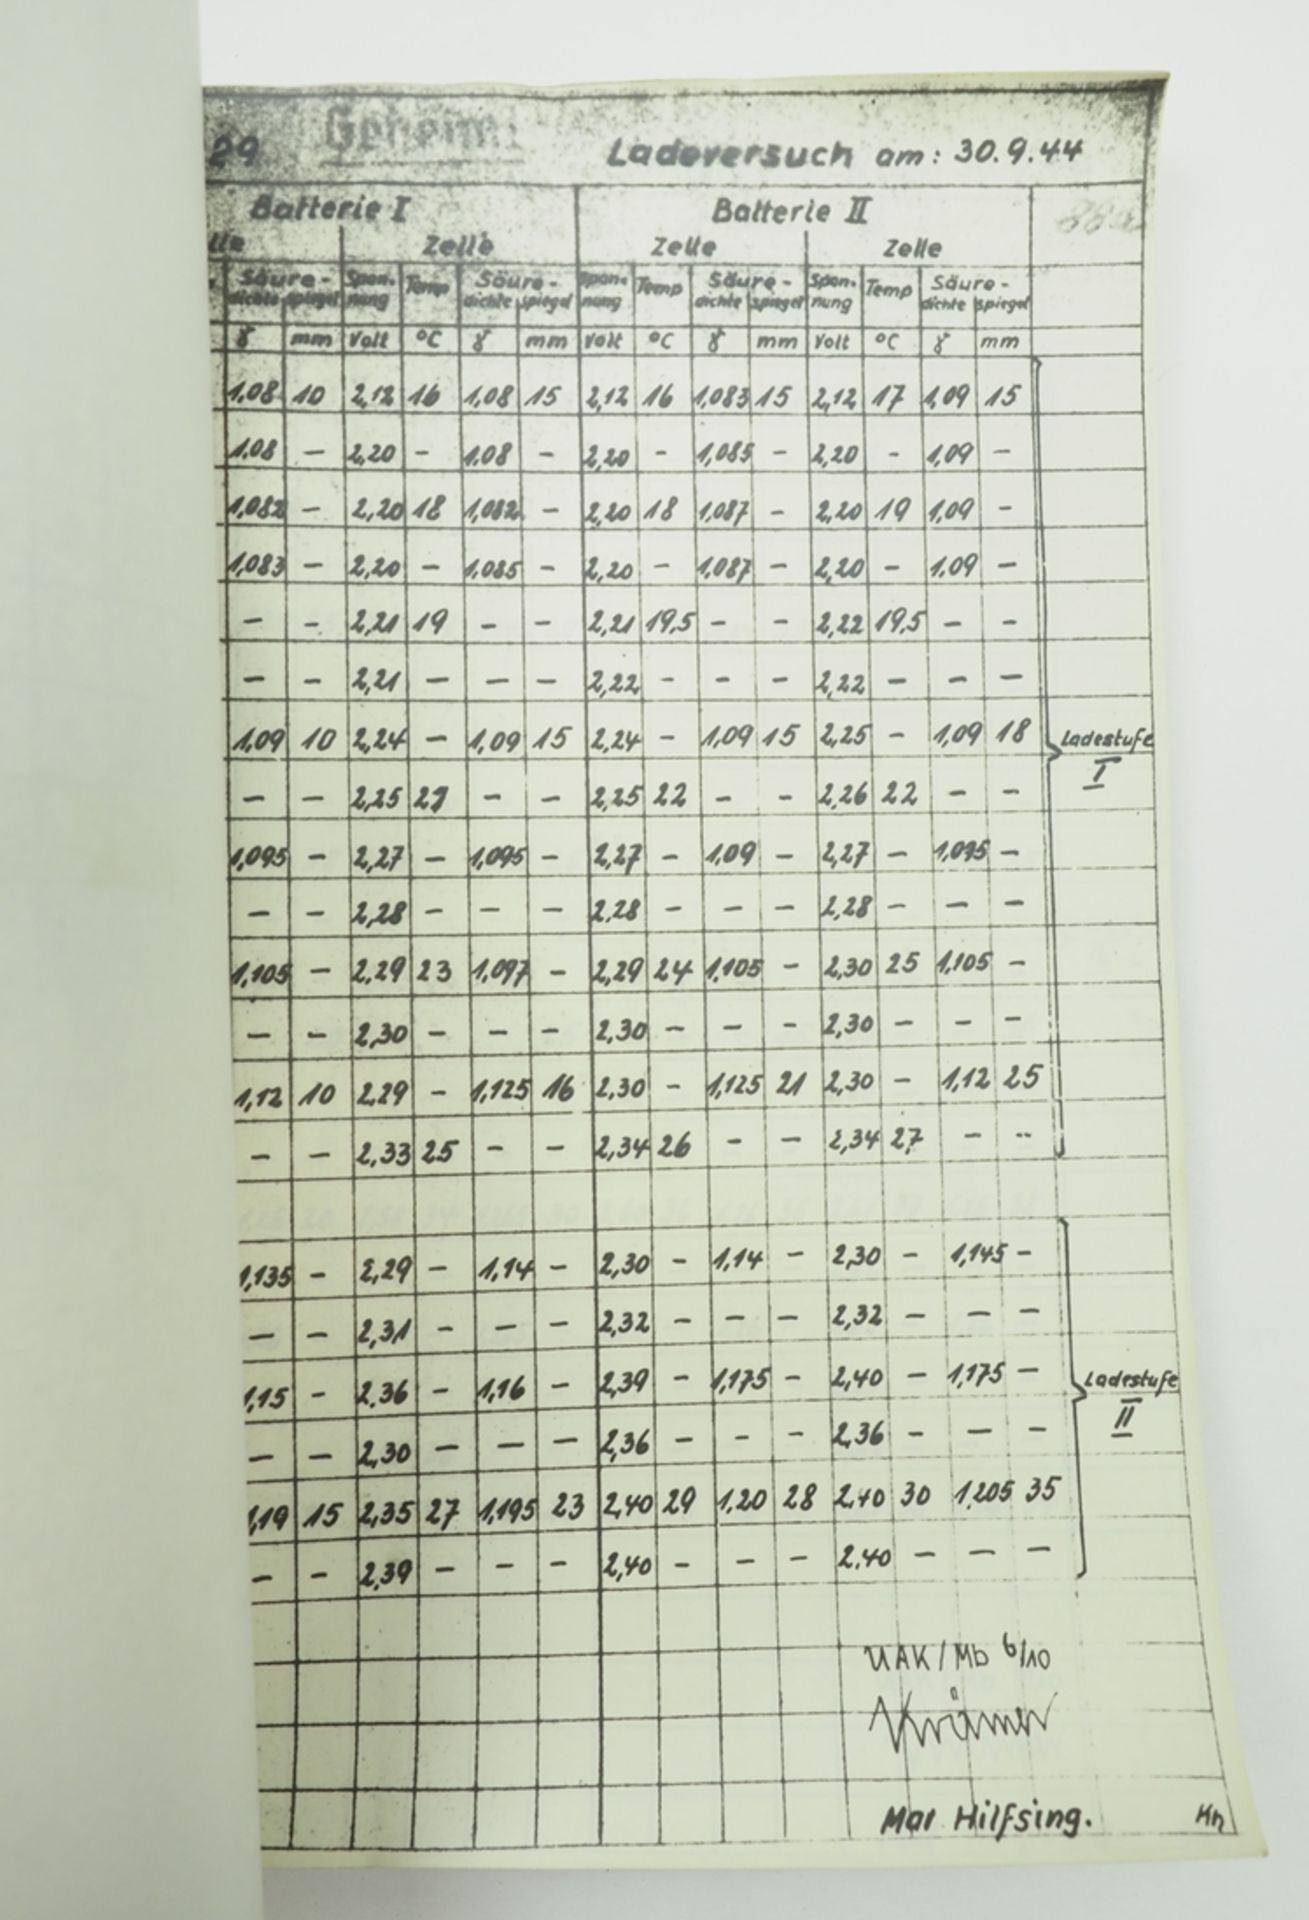 29 Geheim! Ladeversuch am: 30.9.44
Batterie I Batterie II
lle Zelle Zelle Zelle
Säure- Span- Temp Säure- Span- Temp Säure- Span- Temp Säure-
dichte spiegel nung dichte spiegel nung dichte spiegel nung dichte spiegel
γ mm Volt °C γ mm Volt °C γ mm Volt °C γ mm
1,08 10 2,12 16 1,08 15 2,12 16 1,083 15 2,12 17 1,09 15
1,08 – 2,20 – 1,08 – 2,20 – 1,085 – 2,20 – 1,09 –
1,082 – 2,20 18 1,082 – 2,20 18 1,087 – 2,20 19 1,09 –
1,083 – 2,20 – 1,085 – 2,20 – 1,087 – 2,20 – 1,09 –
– – 2,21 19 – – 2,21 19,5 – – 2,22 19,5 – –
– – 2,21 – – – 2,22 – – – 2,22 – – –
1,09 10 2,24 – 1,09 15 2,24 – 1,09 15 2,25 – 1,09 18 Ladestufe
I
– – 2,25 21 – – 2,25 22 – – 2,26 22 – –
1,095 – 2,27 – 1,095 – 2,27 – 1,09 – 2,27 – 1,095 –
– – 2,28 – – – 2,28 – – – 2,28 – – –
1,105 – 2,29 23 1,097 – 2,29 24 1,105 – 2,30 25 1,105 –
– – 2,30 – – – 2,30 – – – 2,30 – – –
1,12 10 2,29 – 1,125 16 2,30 – 1,125 21 2,30 – 1,12 25
– – 2,33 25 – – 2,34 26 – – 2,34 27 – –
1,135 – 2,29 – 1,14 – 2,30 – 1,14 – 2,30 – 1,145 –
– – 2,31 – – – 2,32 – – – 2,32 – – –
1,15 – 2,36 – 1,16 – 2,39 – 1,175 – 2,40 – 1,175 – Ladestufe
II
– – 2,30 – – – 2,36 – – – 2,36 – – –
1,19 15 2,35 27 1,195 23 2,40 29 1,20 28 2,40 30 1,205 35
– – 2,39 – – – 2,40 – – – 2,40 – – –
UAK/Mb 6/10
Krämer
Mar Hilfsing. Kn